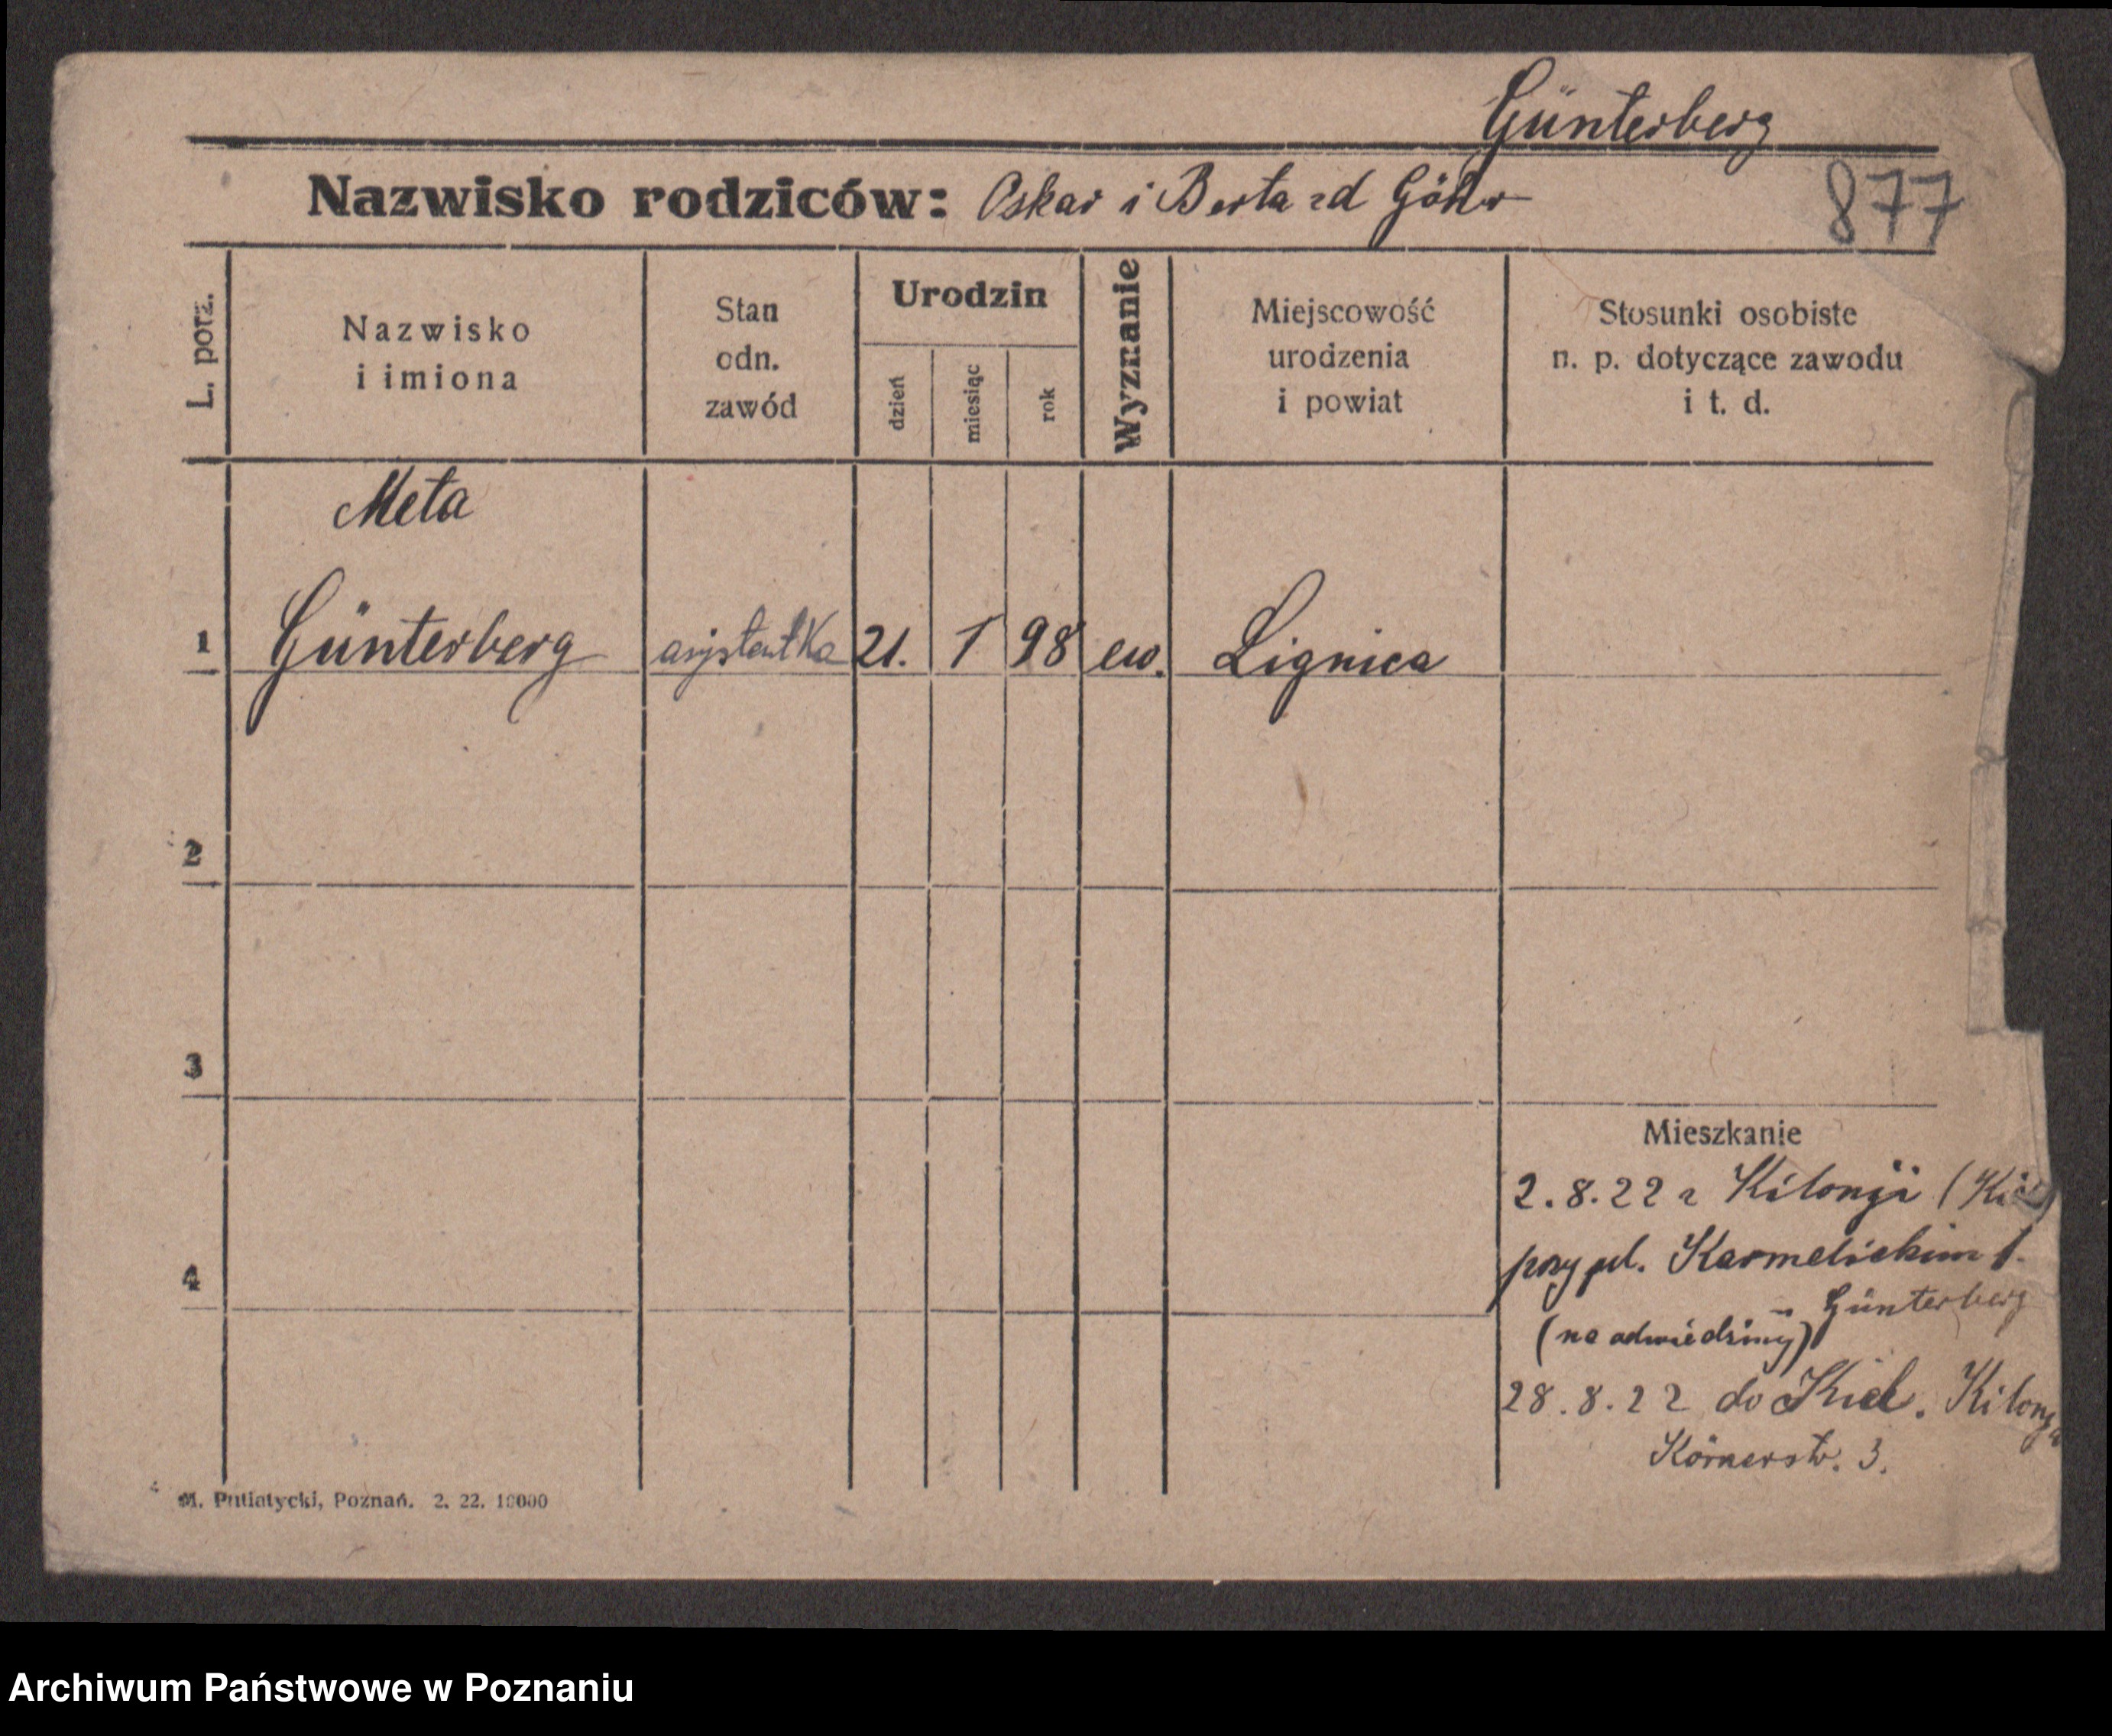 Günterberg
Nazwisko rodziców: Oskar i Berta zd
877
L. porz.
Nazwisko
i imiona
Stan
odn.
zawód
Urodzin
dzień
miesiąc
rok
Wyznanie
Miejscowość
urodzenia
i powiat
Stosunki osobiste
n. p. dotyczące zawodu
i t. d.
Meta
1 Günterberg asystentka 21. 1 98 ew. Lignica
2
3
4
Mieszkanie
2.8.22 z Kilonji
przy pl. Karmelickim 1.
Günterberg
(na odwiedziny)
28.8.22 do Kiel. Kilonja
Körnerstr. 3.
M. Putiatycki, Poznań. 2. 22. 10000
Archiwum Państwowe w Poznaniu